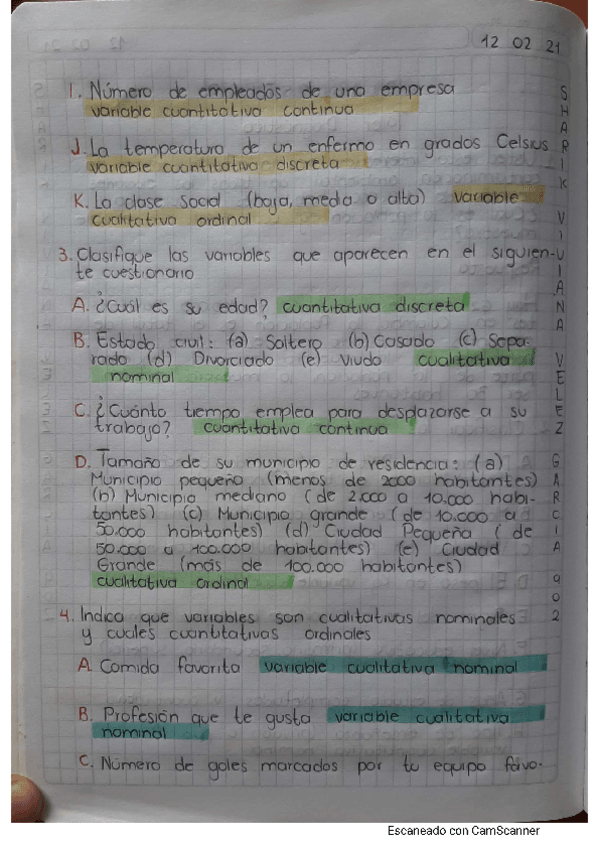 12 02 21
I. Número de empleados de una empresa
variable cuantitativa continua
J. La temperatura de un enfermo en grados Celsius
variable cuantitativa discreta
K. La clase social (baja, media o alta) variable
cualitativa ordinal
3. Clasifique las variables que aparecen en el siguien-
te cuestionario
A. ¿Cuál es su edad? cuantitativa discreta
B. Estado civil: (a) Soltero (b) Casado (c) Sepa-
rado (d) Divorciado (e) Viudo cualitativa
nominal
C. ¿Cuánto tiempo emplea para desplazarse a su
trabajo? cuantitativa continua
D. Tamaño de su municipio de residencia: (a)
Municipio pequeño (menos de 2000 habitantes)
(b) Municipio mediano (de 2.000 a 10.000 habi-
tantes) (c) Municipio grande (de 10.000 a
50.000 habitantes) (d) Ciudad Pequeña (de
50.000 a 100.000 habitantes) (e) Ciudad
Grande (más de 100.000 habitantes)
cualitativa ordinal
4. Indica que variables son cualitativas nominales
y cuales cuantitativas ordinales
A. Comida favorita variable cualitativa nominal
B. Profesión que te gusta variable cualitativa
nominal
C. Número de goles marcados por tu equipo favo-
SHARIK VIVIANA VELEZ GARCIA 902
Escaneado con CamScanner